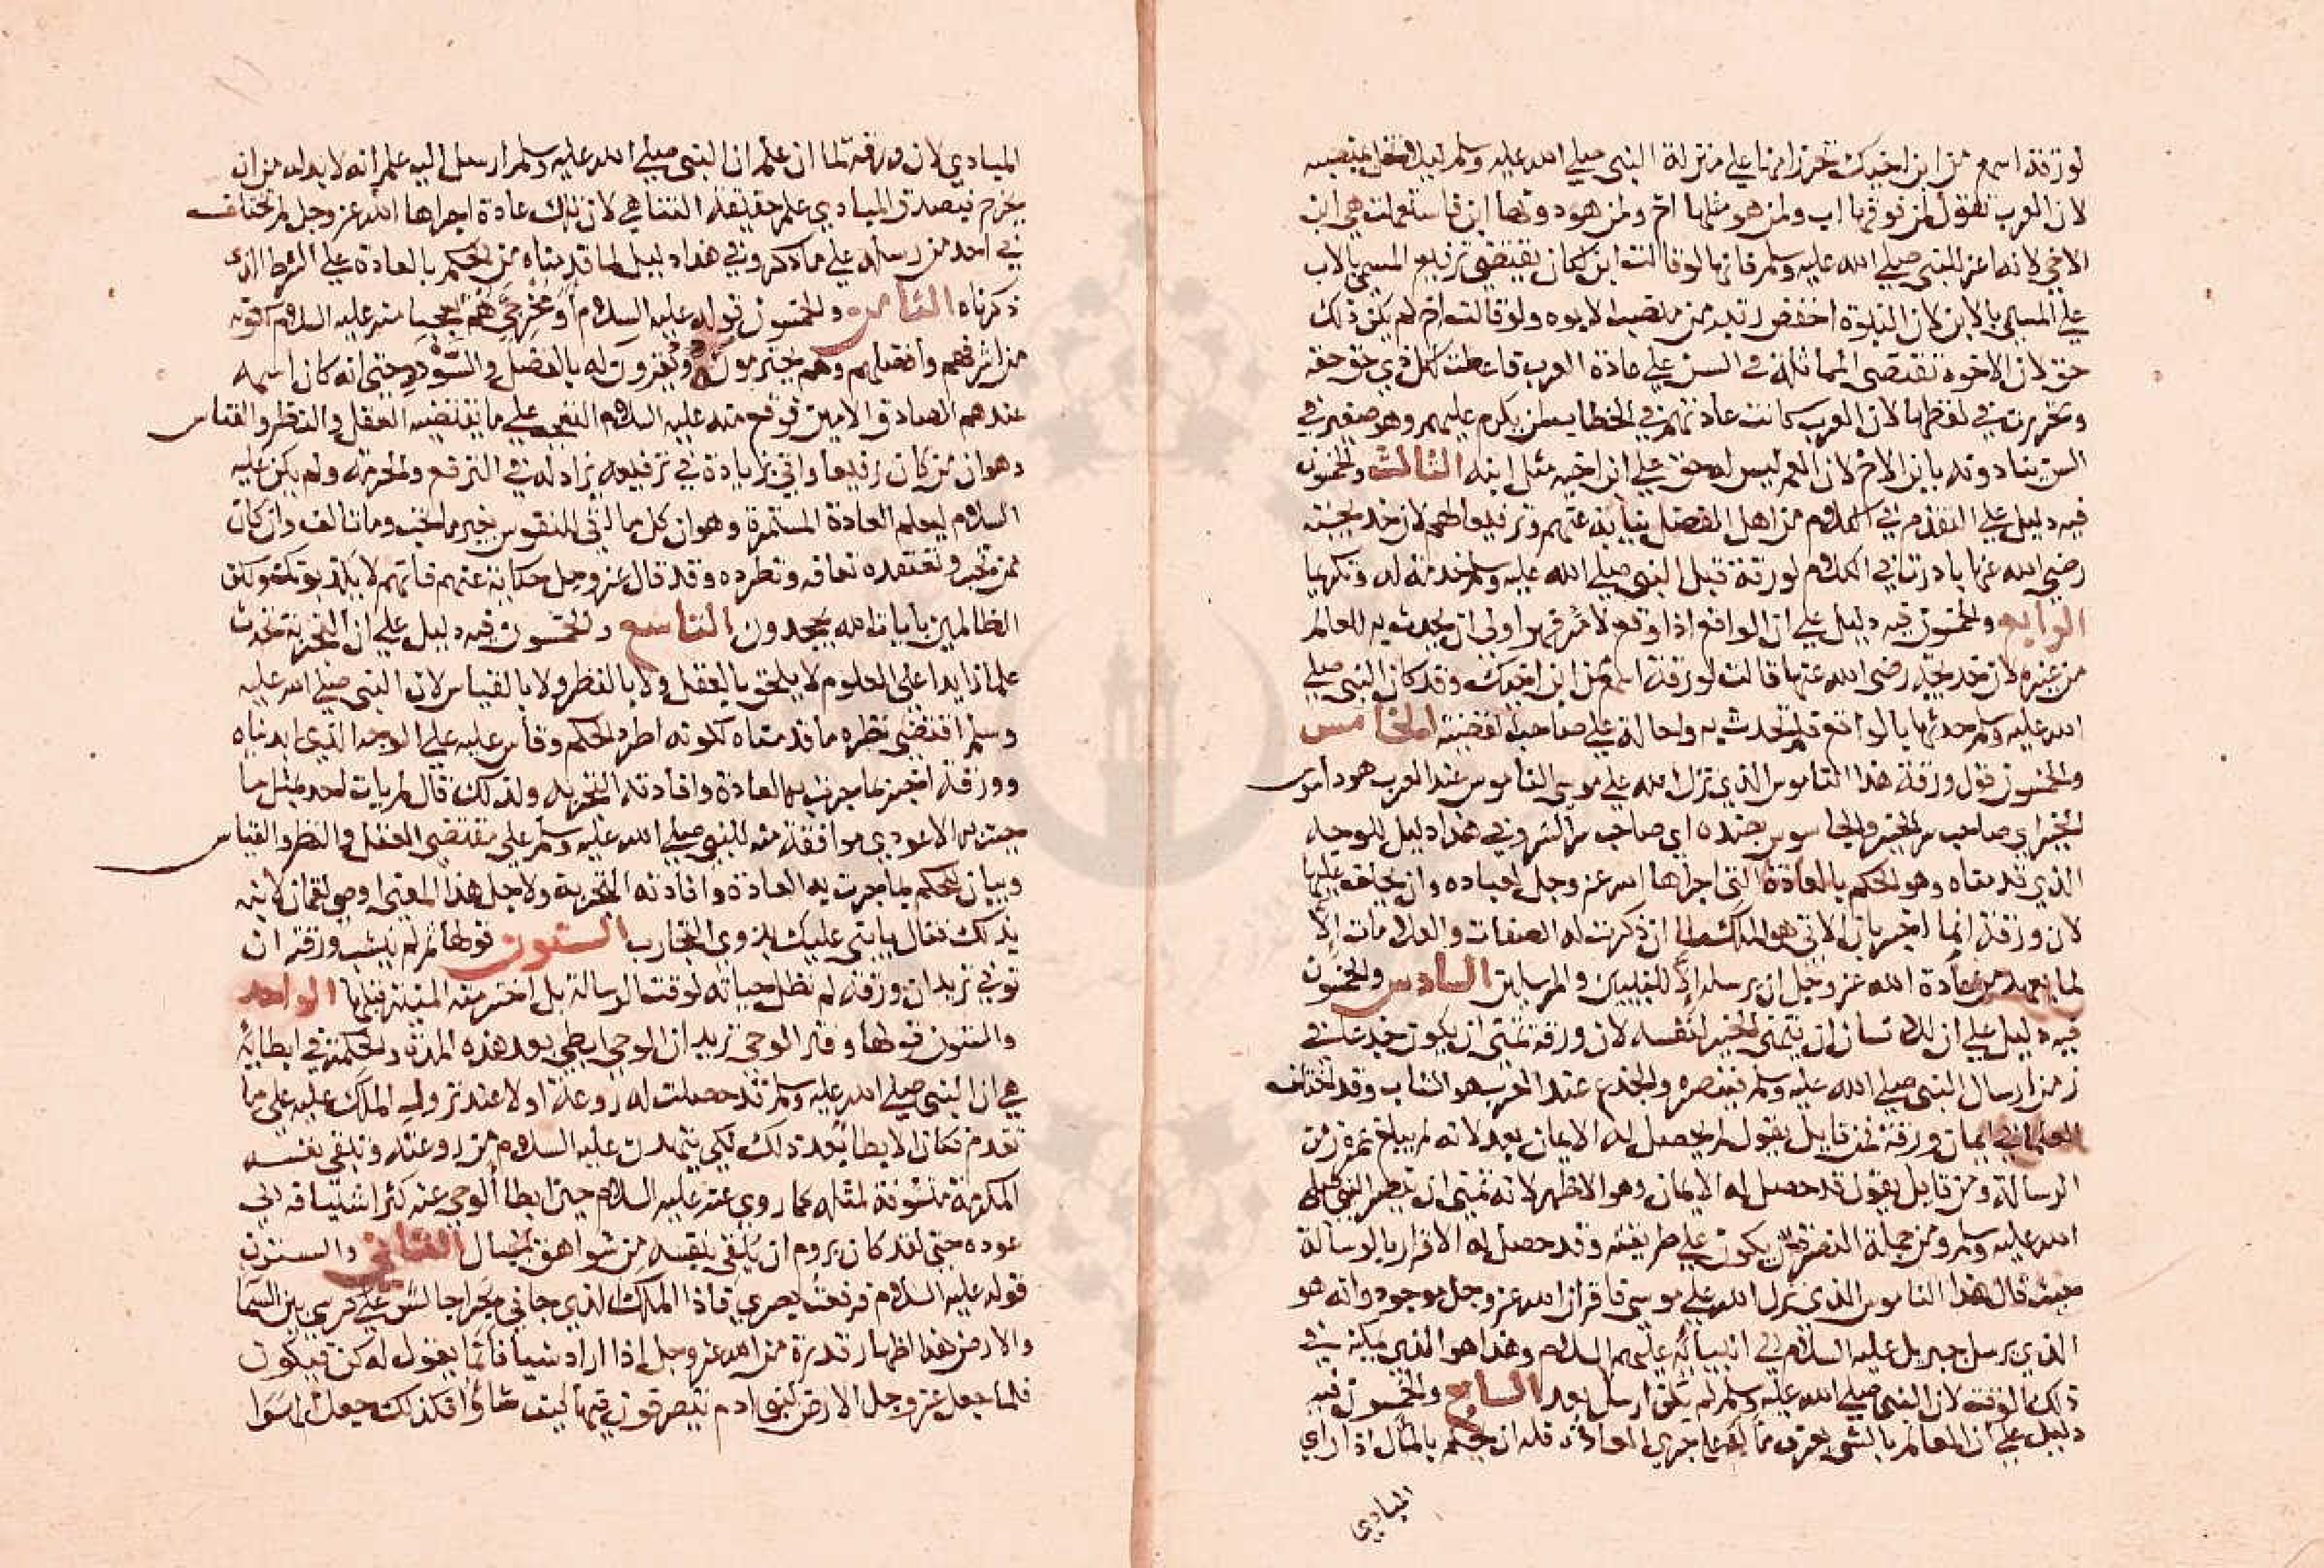 لورقة اسمع من ابن اخيك تحرزا منها على منزلة النبي صلى الله عليه وسلم
لان العرب تقول لمن فوقها اب ولمن هو مثلها اخ ولمن هو دونها ابن فاستعملت هي ابن
الاخ لانه اعز للنبي صلى الله عليه وسلم فانها لو قالت ابن لكان يقتضي ترفيع المسمى بالاب
على المسمى بالابن لان البنوة اخفض رتبة من منصب الابوه ولو قالت اخ لم يكن ذلك
حق لان الاخوة تقتضي المماثلة في السن على عادة العرب فاعطت لكل ذي حق حقه
وتحررت في لفظها لان العرب كانت عادتهم في الخطاب لمن يكرم عليهم وهو صغير في
السن ينادونه بابن الاخ لان العم ليس له حق على ابن اخيه مثل ابنه الثالث والخمسون
فيه دليل على التقدم في الكلام من اهل الفضل نيابة عنهم وترفيعا لهم لان خديجة
رضي الله عنها بادرت في الكلام لورقة قبل النبي صلى الله عليه وسلم خدمة له وتكريما
الرابع والخمسون فيه دليل على ان الواقع اذا وقع لامر فهو اولى ان يحدث به للعالم
من غيره لان خديجة رضي الله عنها قالت لورقة اسمع من ابن اخيك وقد كان النبي صلى
الله عليه وسلم حدثها بالواقع فلم تحدث به واحالة على صاحب القضية الخامس
والخمسون قول ورقة هذا الناموس الذي نزل الله على موسى الناموس عند العرب هو
الخير اي صاحب سر الخير والجاسوس بضده اي صاحب سر الشر وفي هذا دليل للوجه
الذي قدمناه وهو الحكم بالعادة التي اجراها الله عز وجل لعباده وان يخاف عليها
لان ورقة انما اخبر بان الاتي هو الملك لما ان ذكرت له الصفات والعلامات الا
لما يعهد من عادة الله عز وجل ان يرسله الا للنبيين والمرسلين السادس والخمسون
فيه دليل على ان للانسان ان يتمنى الخير لنفسه لان ورقة تمنى ان يكون جذعا في
زمن ارسال النبي صلى الله عليه وسلم فينصره والجذع عند العرب هو الشاب وقد اختلف
العلماء في ايمان ورقة فمن قايل يقول لم يحصل له الايمان بعد لانه لم يبلغ زمن
الرسالة ومن قايل يقول قد حصل له الايمان وهو الاظهر لانه تمنى ان ينصر النبي صلى
الله عليه وسلم ومن جملة النصرة ان يكون على طريقته وقد حصل له الاقرار بالرسالة
حيث قال هذا الناموس الذي نزل الله على موسى فاقر ان الله عز وجل موجود وانه هو
الذي يرسل جبريل عليه السلام الى انبيائه عليهم السلام وهذا هو الذي يمكنه في
ذلك الوقت لان النبي صلى الله عليه وسلم لم يكن ارسل بعد السابع والخمسون فيه
دليل على ان العالم بالشي يعرف مما تجري العادة فله ان يحكم بالمال اذا راى
المبادي
المبادي لان ورقة لما ان علم ان النبي صلى الله عليه وسلم ارسل اليه علم انه لا بد له من ان
يخرج فبصدق المبادي علم حقيقة التناهي لان ذلك عادة اجراها الله عز وجل لم تختلف
في احد من رسله على ما ذكر وفي هذا دليل لما قدمناه من الحكم بالعادة على الشرط الذي
ذكرناه الثامن والخمسون قوله عليه السلام او مخرجي هم تعجبا منه عليه السلام لكونه
من اشرفهم وافضلهم وهم يحترمونه ويقرون له بالفضل والسؤدد حتى انه كان اسمه
عندهم الصادق الامين فوقع منه عليه السلام التعجب على ما يقتضيه العقل والنظر والقياس
وهو ان من كان رفيعا واتى بزيادة في ترفيعه يزاد له في الترفع والحرمة ولم يكن عليه
السلام ليعلم العادة المستمرة وهو ان كل ما لقي النفوس بغير ما تحب وما تالف وان كان
ممن تحب وتعتقده تعافه وتطرده وقد قال عز وجل حكاية عنهم فانهم لا يكذبونك ولكن
الظالمين بايات الله يجحدون التاسع والخمسون فيه دليل على ان التجربة تحدث
علما زايدا على العلوم لا يلحق بالعقل ولا بالنظر ولا بالقياس لان النبي صلى الله عليه
وسلم اقتضى نظره ما قدمناه لكونه اطرد الحكم وقاس عليه على الوجه الذي ابديناه
وورقة اخبر بما جرت به العادة وافادته التجربة ولذلك قال لم يات احد بمثل ما
جيت به الا عودي موافقة منه للنبي صلى الله عليه وسلم على مقتضى العقل والنظر والقياس
وبيان للحكم بما جرت به العادة وافادته التجربة ولاجل هذا المعنى اوصى لقمان لابنه
بذلك فقال يا بني عليك بذوي التجارب الستون قولها ثم لم ينشب ورقة ان
توفي تريد ان ورقة لم تطل حياته لوقت الرسالة بل اخترمته المنية قبلها الواحد
والستون قولها وفتر الوحي تريد ان الوحي ابطي بعد هذه المدة والحكمة في ابطائه
هي ان النبي صلى الله عليه وسلم قد حصلت له روعة اولا عند نزول الملك عليه على ما
تقدم فكان الابطا بعد ذلك لكي يتهدن عليه السلام من روعته وتبقى نفسه
المكرمة متشوفة لمثله كما روي عنه عليه السلام حين ابطا الوحي عنه كثر اشتياقه الى
عوده حتى لقد كان يروم ان يلقي بنفسه من شواهق الجبال الثاني والستون
قوله عليه السلام فرفعت بصري فاذا الملك الذي جاني بحرا جالس على كرسي بين السما
والارض هذا اظهار قدرة من الله عز وجل اذا اراد شيا فانما يقول له كن فيكون
فلما جعل عز وجل الارض لبني ادم يتصرفون فيها كيف شاؤا فكذلك جعل الهوا